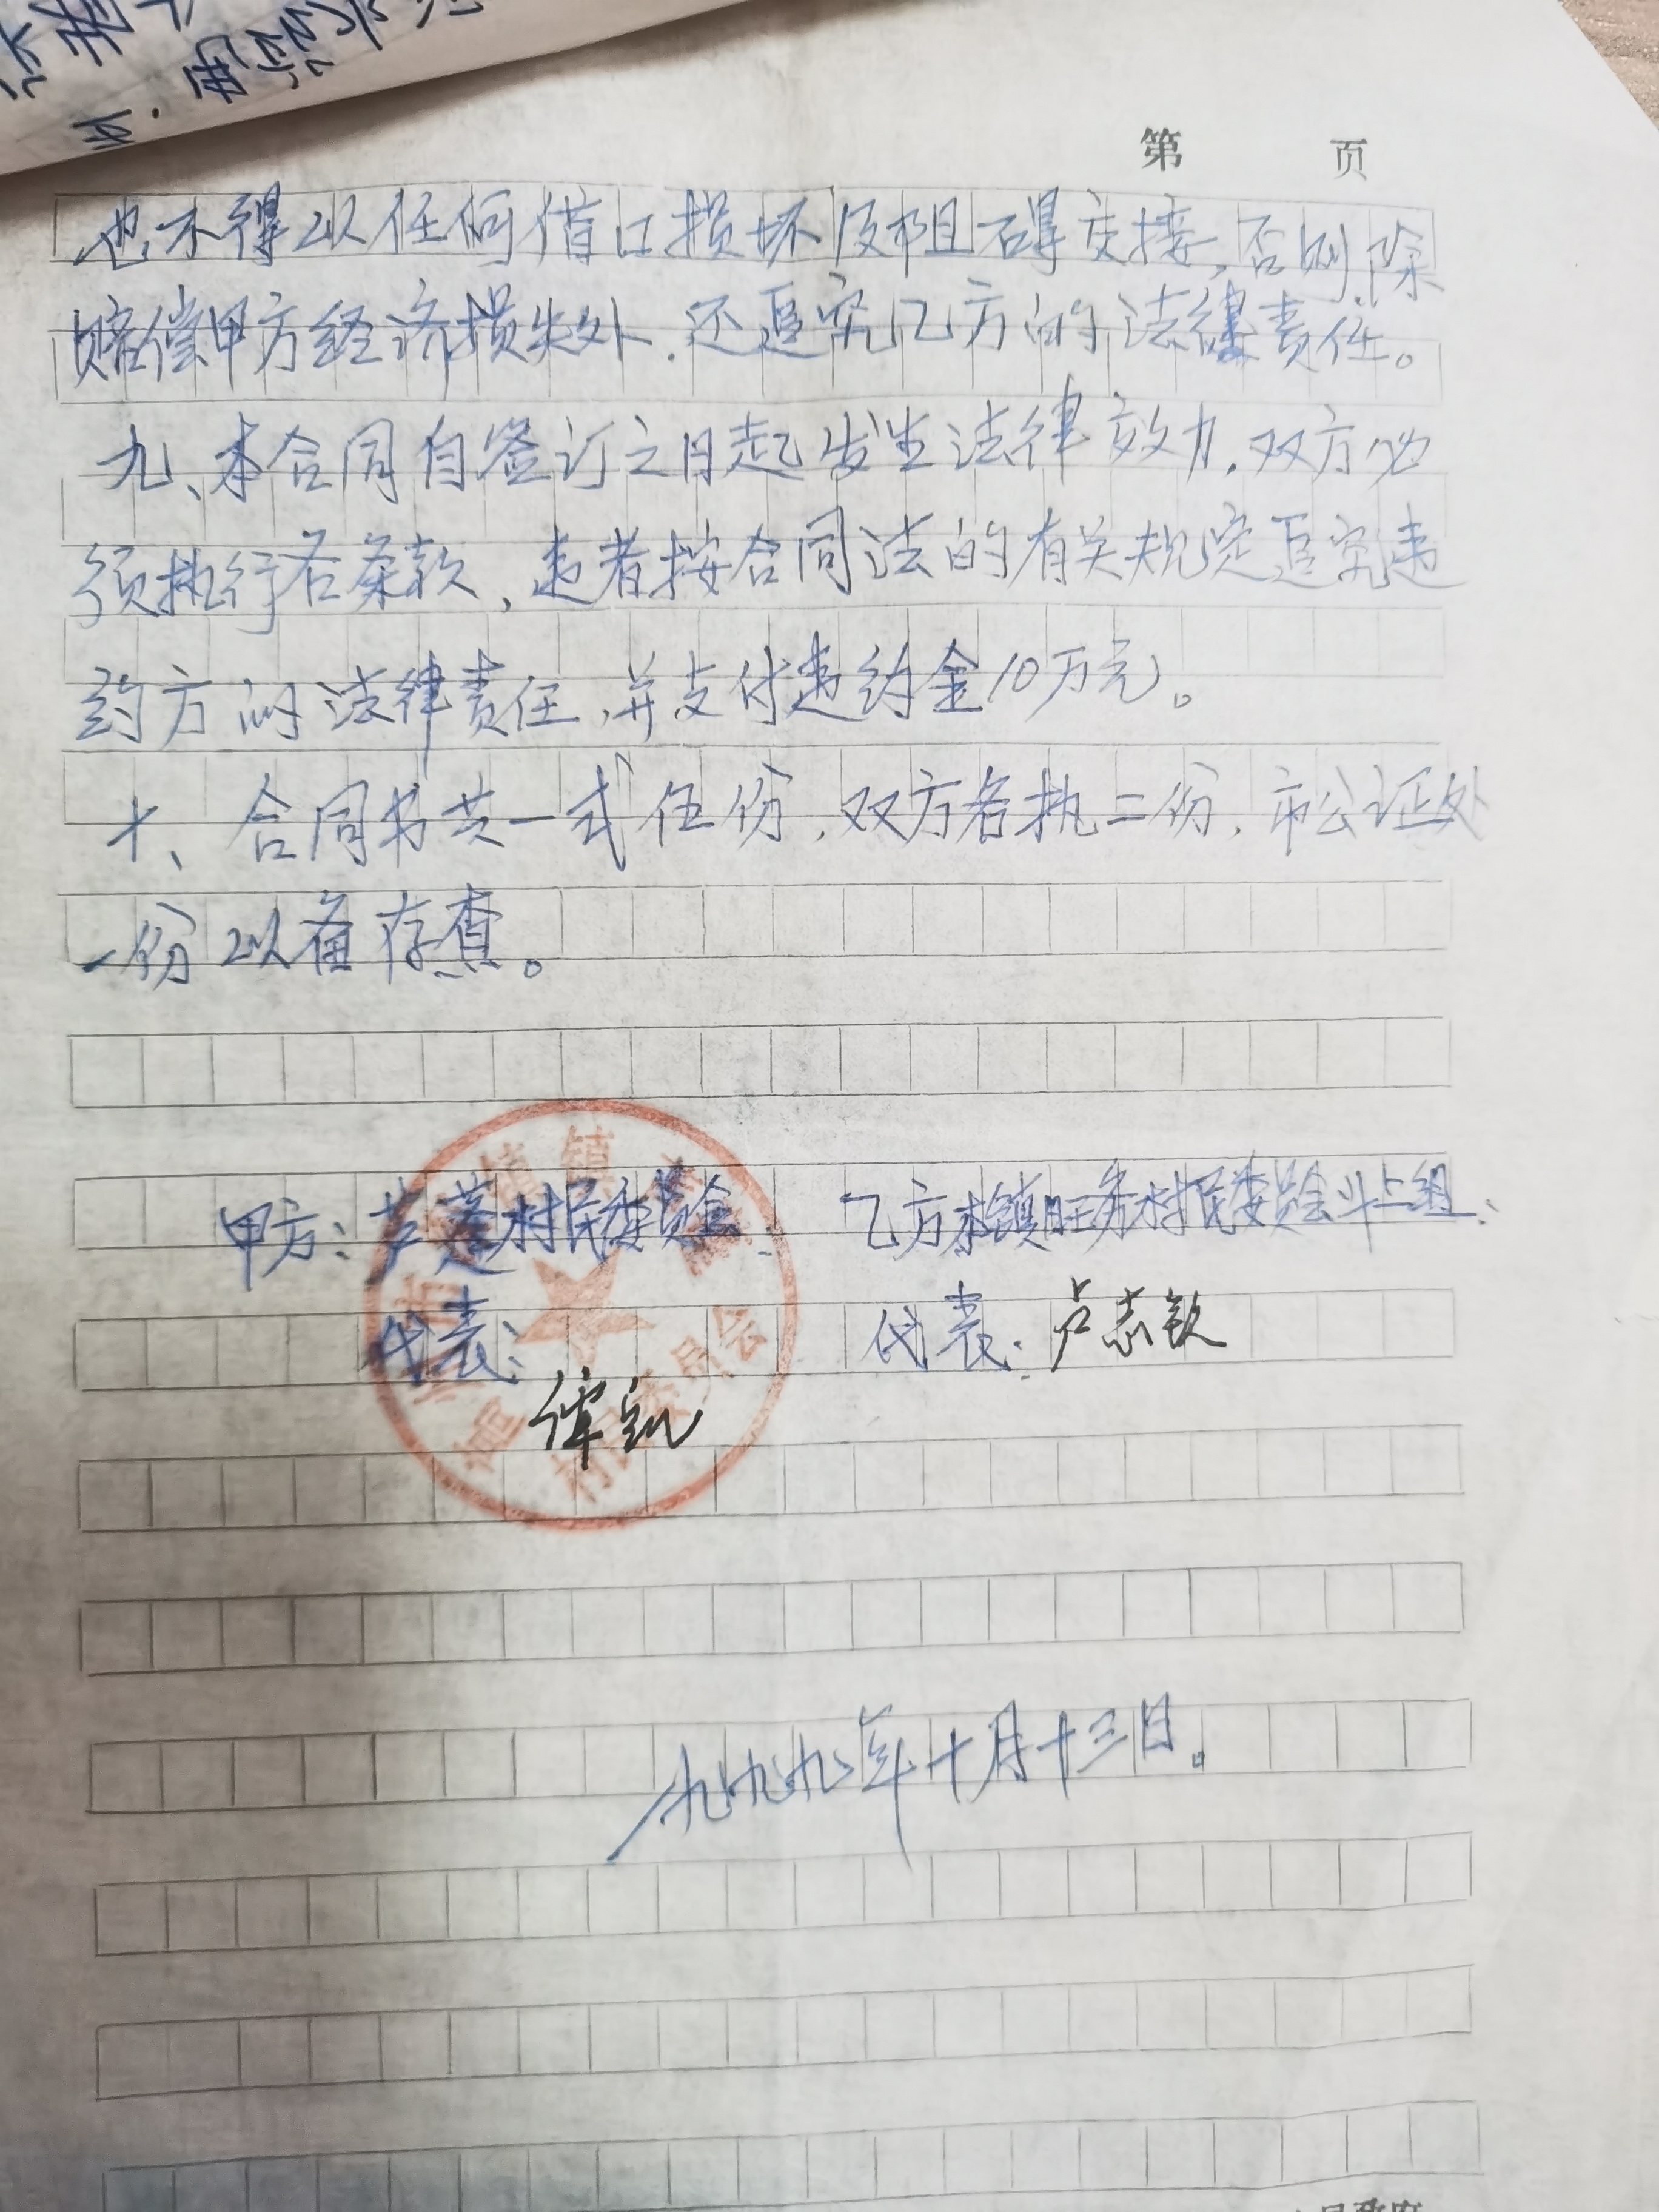 第 页
也不得以任何借口损坏及阻碍交接,否则,除
赔偿甲方经济损失外.还追究乙方的法律责任。
九、本合同自签订之日起发生法律效力.双方必
须执行各条款,违者按合同法的有关规定追究违
约方的法律责任,并支付违约金10万元。
十、合同书共一式伍份,双方各执二份,市公证处
一份以备存查。
甲方:芦蓬村民委员会
乙方本镇旺务村民委员会斗上组
代表:
代表:卢志钦
镇
村 委员会
一九九九年十月十三日。